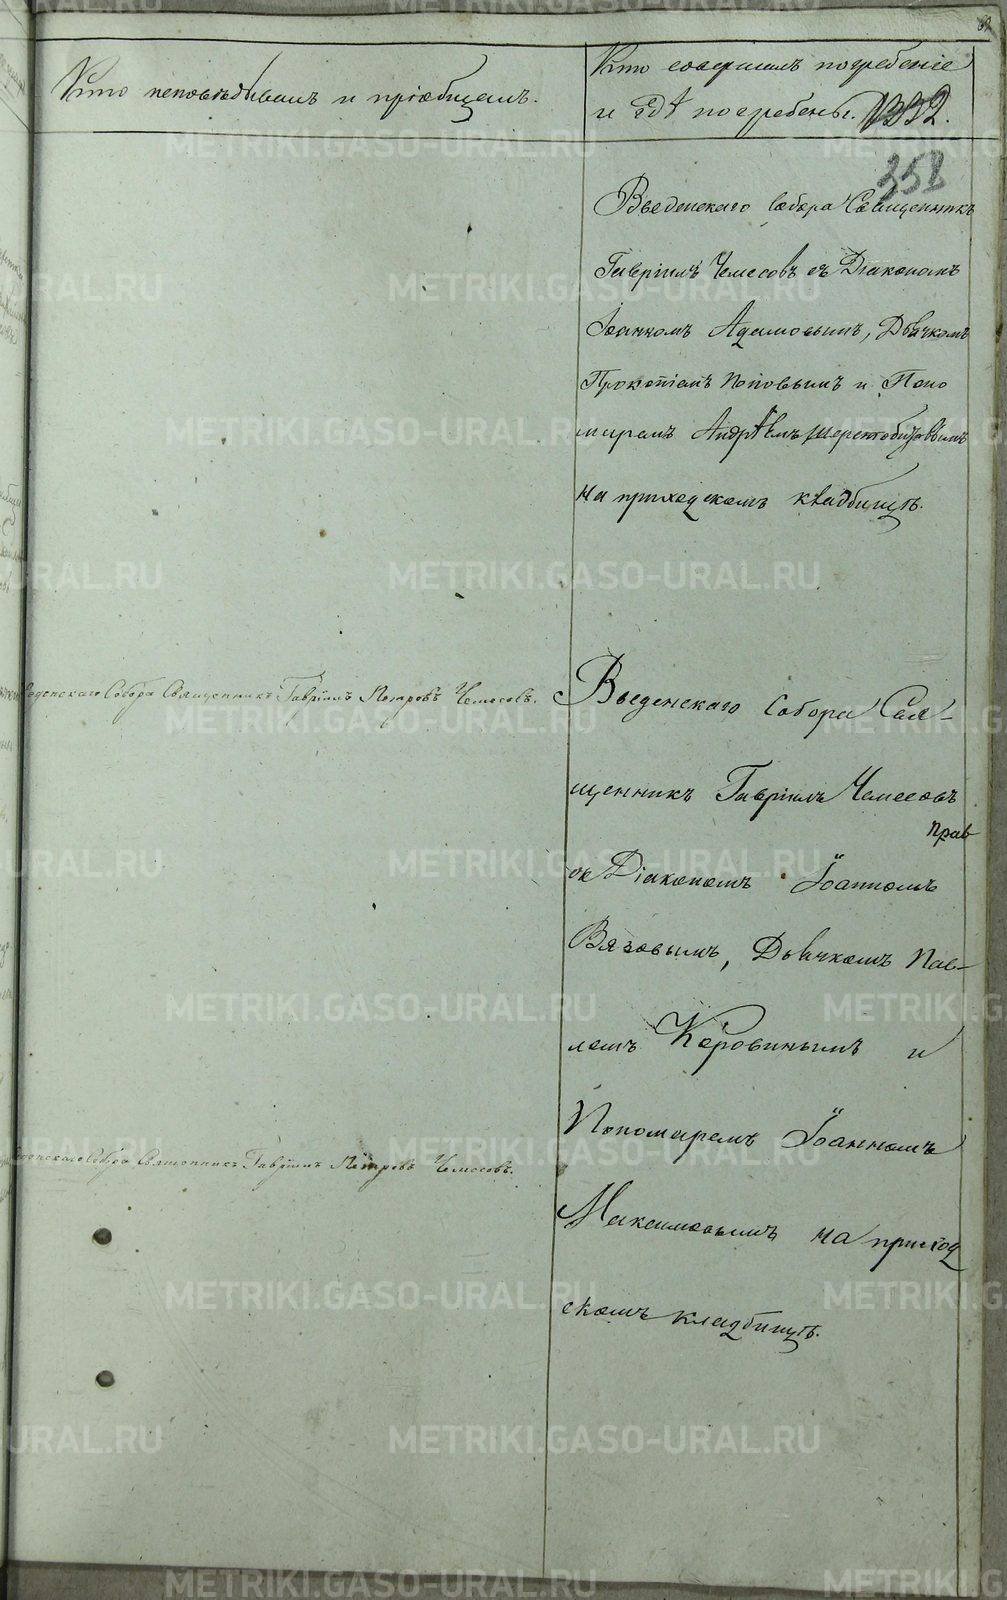 Кто исповѣдывалъ и пріобщалъ.
Кто совершалъ погребеніе
и гдѣ погребены. 1332.
358
Введенскаго Собора Священникъ
Гавріилъ Чемесовъ съ Діакономъ
Іоанномъ Адамовымъ, Дьячкомъ
Прокопіемъ Поповымъ и Поно
маремъ Андрѣемъ
на приходскомъ кладбищѣ.
Введенскаго Собора Священникъ Гавріилъ Петровъ Чемесовъ.
Введенскаго Собора Свя-
щенникъ Гавріилъ Чемесовъ
прав
съ Діакономъ Іоанномъ
Вязовымъ, Дьячкомъ Пав-
ломъ Коровинымъ и
Пономаремъ Іоанномъ
Максимовымъ на приход
скомъ кладбищѣ.
Введенскаго Собора Священникъ Гавріилъ Петровъ Чемесовъ.
METRIKI.GASO-URAL.RU